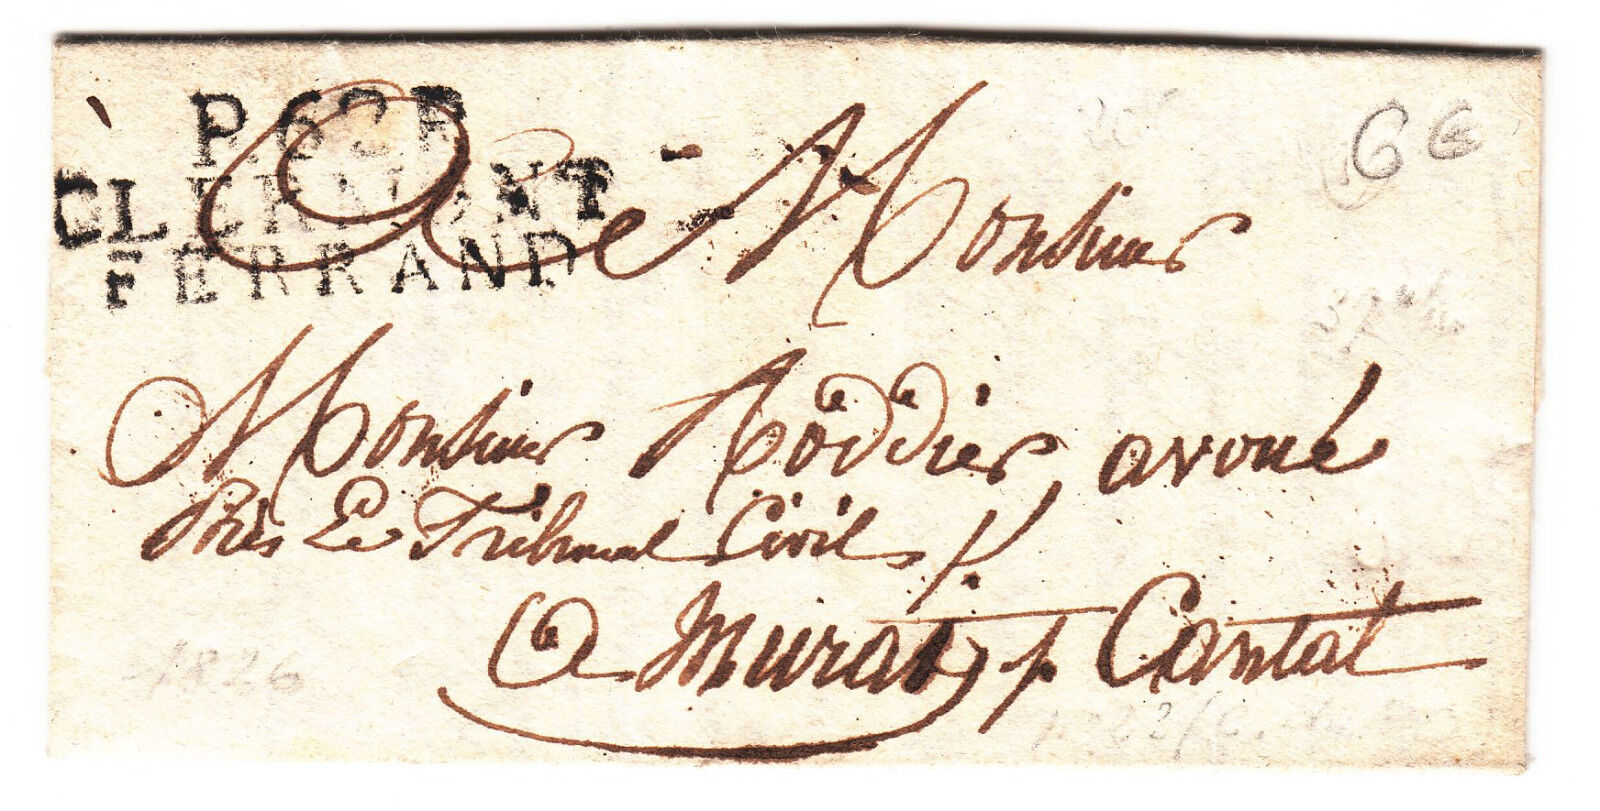 P.62.P
CLERMONT
FERRAND
A Monsieur
6 €
Monsieur Roddier, avoué
Près Le Tribunal Civil /.
a Murat, p. Cantal
1826